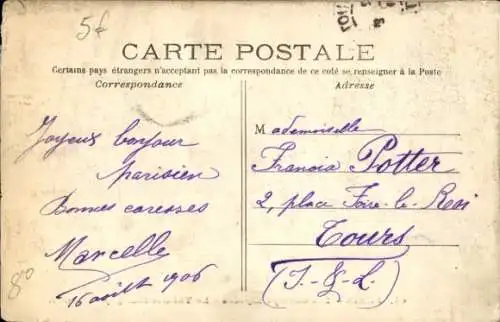 5f
CARTE POSTALE
Certains pays étrangers n'acceptant pas la correspondance de ce coté se renseigner à la Poste
Correspondance
Adresse
Joyeux bonjour
parisien
Bonnes caresses
Marcelle
16 août 1906
80
Mademoiselle
Potter
2, place Foire-le-Roi
Tours
(I.-&-L.)